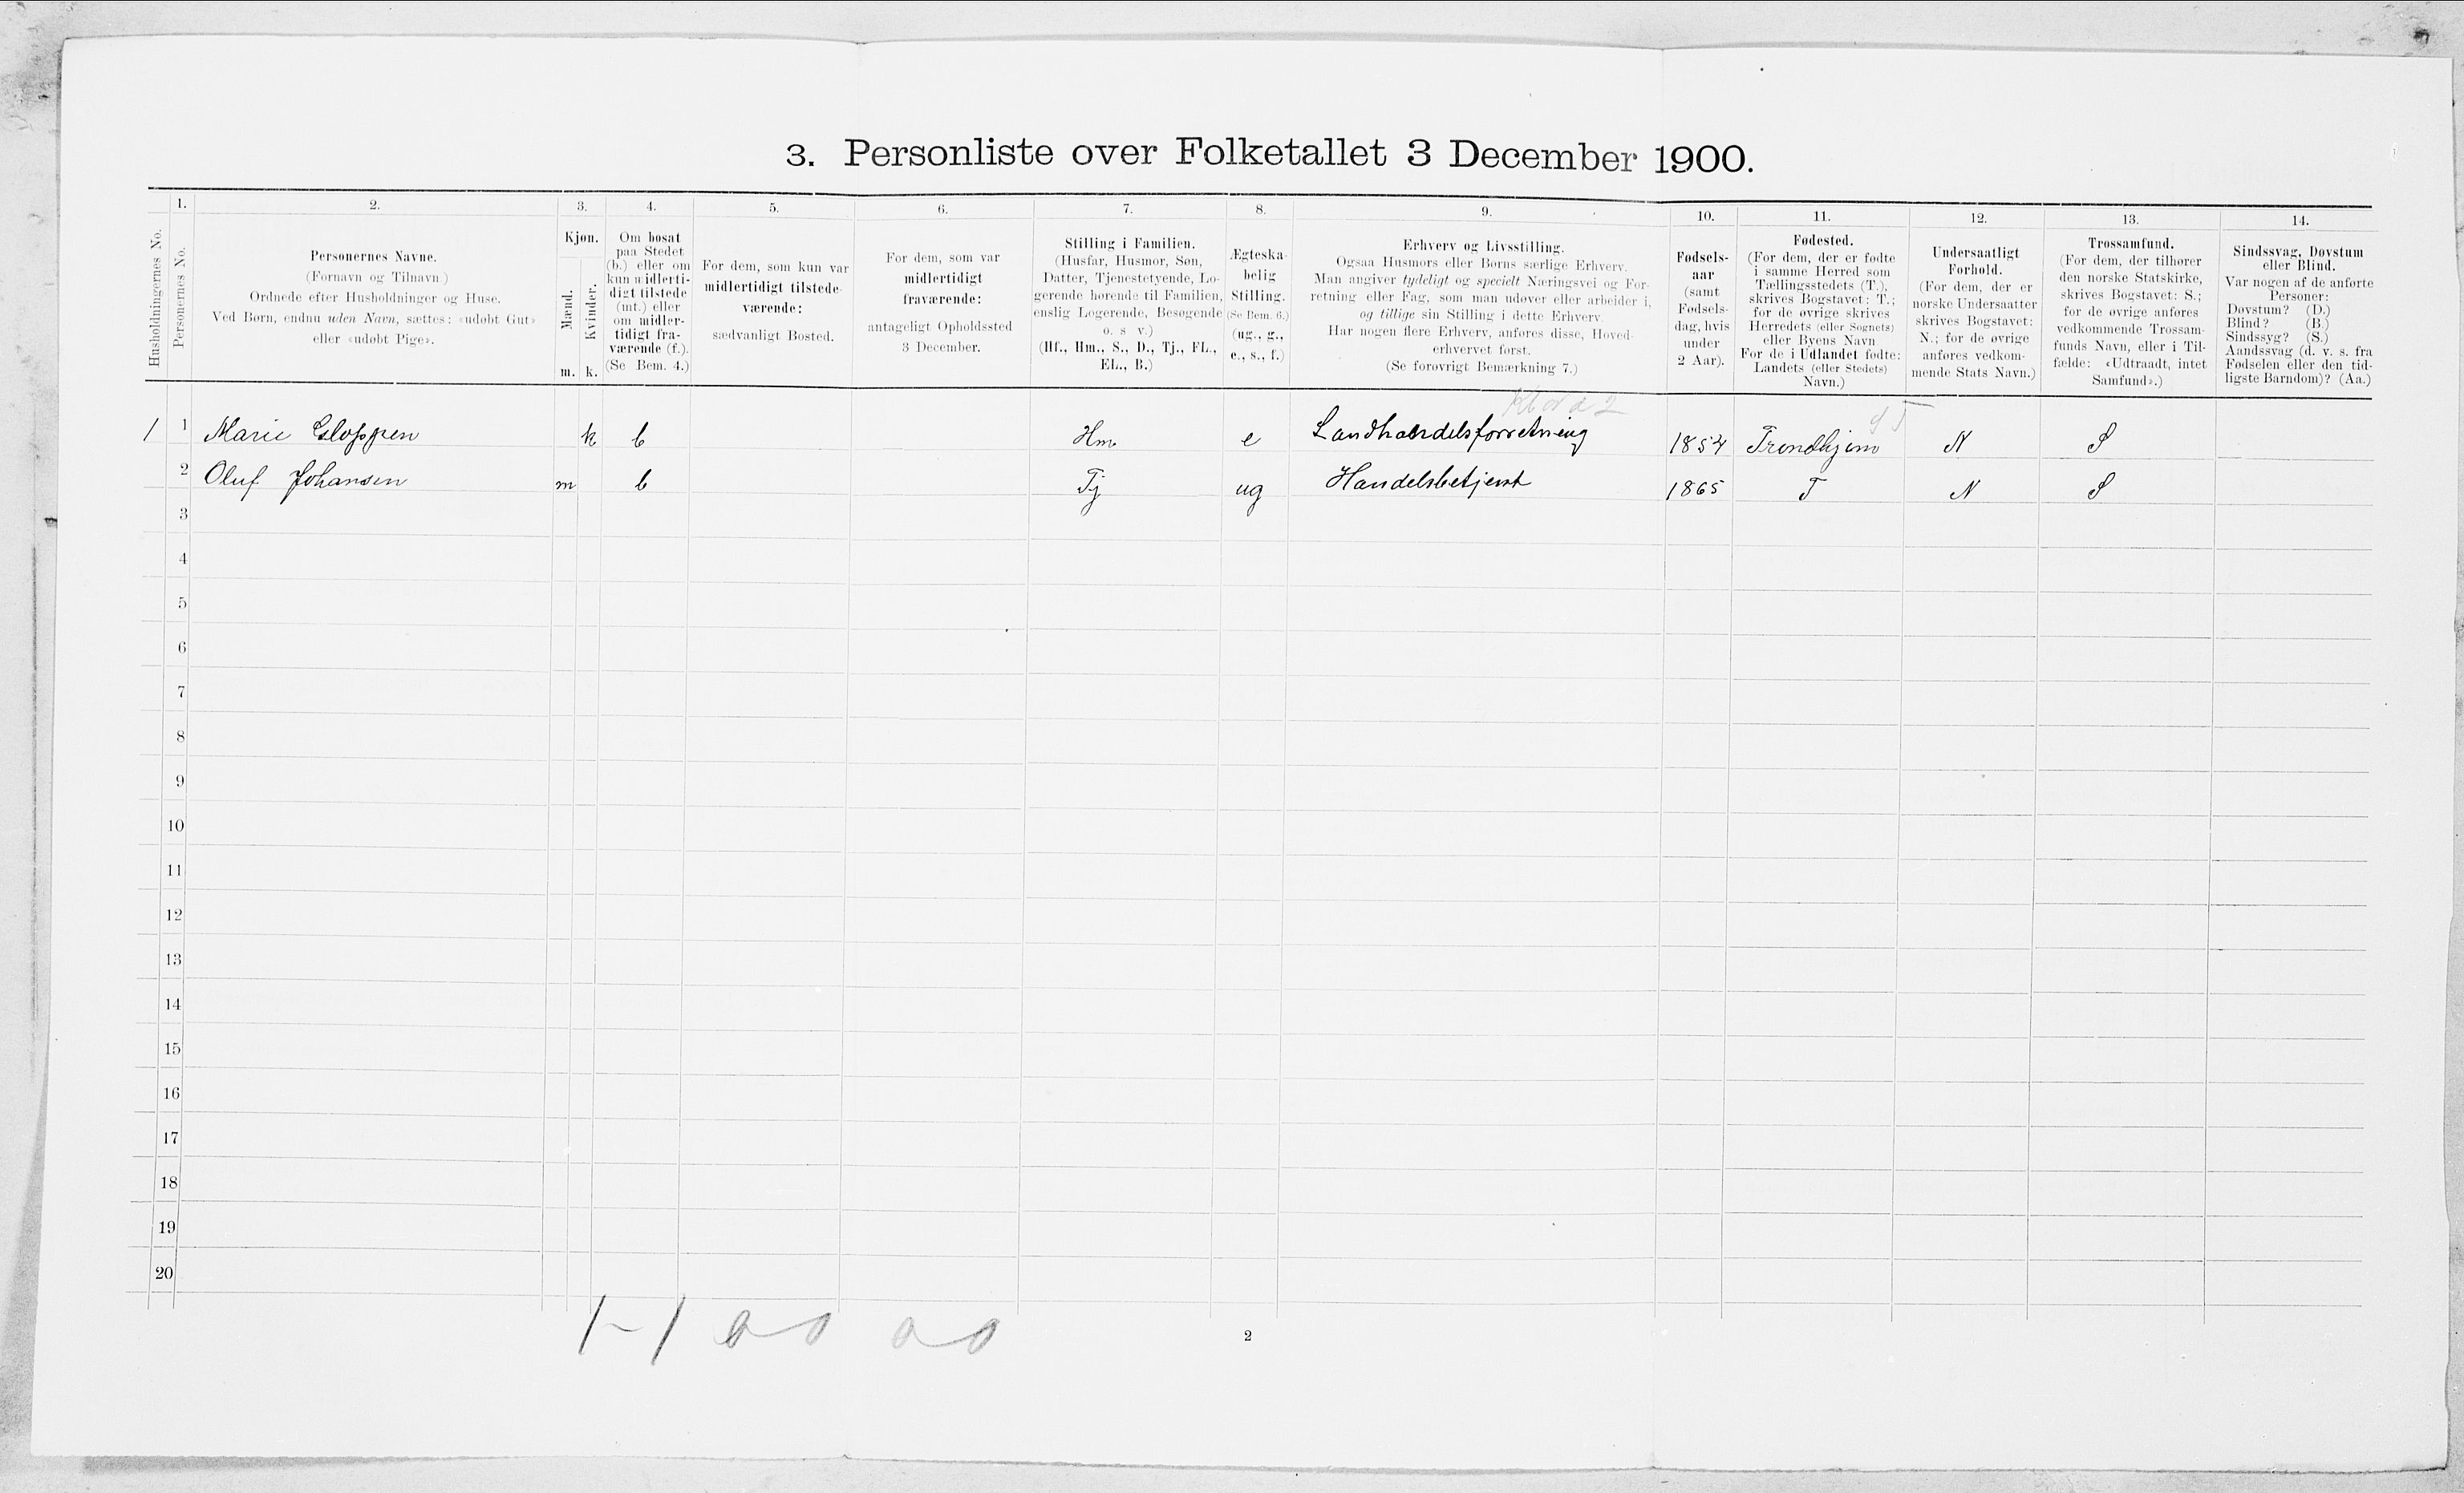 3. Personliste over Folketallet 3 December 1900.
Husholdningernes No.
1.
Personernes No.
2.
Personernes Navne.
(Fornavn og Tilnavn)
Ordnede efter Husholdninger og Huse.
Ved Børn, endnu uden Navn, sættes: «udøbt Gut»
eller «udøbt Pige».
3.
Kjøn.
Mænd.
Kvinder.
m. k.
4.
Om bosat
paa Stedet
(b.) eller om
kun midlerti-
digt tilstede
(mt.) eller
om midler-
tidigt fra-
værende (f.).
(Se Bem. 4.)
5.
For dem, som kun var
midlertidigt tilstede-
værende:
sædvanligt Bosted.
6.
For dem, som var
midlertidigt
fraværende:
antageligt Opholdssted
3 December.
7.
Stilling i Familien.
(Husfar, Husmor, Søn,
Datter, Tjenestetyende, Lo-
gerende hørende til Familien,
enslig Logerende, Besøgende
o. s v.)
(Hf., Hm., S., D., Tj., FL.,
EL., B.)
8.
Ægteska-
belig
Stilling.
(Se Bem. 6.)
(ug., g.,
e., s., f.)
9.
Erhverv og Livsstilling.
Ogsaa Husmors eller Børns særlige Erhverv.
Man angiver tydeligt og specielt Næringsvei og For-
retning eller Fag, som man udøver eller arbeider i,
og tillige sin Stilling i dette Erhverv.
Har nogen flere Erhverv, anføres disse, Hoved-
erhvervet først.
(Se forøvrigt Bemærkning 7.)
10.
Fødsels-
aar
(samt
Fødsels-
dag, hvis
under
2 Aar).
11.
Fødested.
(For dem, der er fødte
i samme Herred som
Tællingsstedets (T.),
skrives Bogstavet: T.;
for de øvrige skrives
Herredets (eller Sognets)
eller Byens Navn
For de i Udlandet fødte:
Landets (eller Stedets)
Navn.)
12.
Undersaatligt
Forhold.
(For dem, der er
norske Undersaatter
skrives Bogstavet:
N.; for de øvrige
anføres vedkom-
mende Stats Navn.)
13.
Trossamfund.
(For dem, der tilhører
den norske Statskirke,
skrives Bogstavet: S.;
for de øvrige anføres
vedkommende Trossam-
funds Navn, eller i Til-
fælde: «Udtraadt, intet
Samfund».)
14.
Sindssvag, Døvstum
eller Blind.
Var nogen af de anførte
Personer:
Døvstum? (D.)
Blind? (B.)
Sindssyg? (S.)
Aandssvag (d. v. s. fra
Fødselen eller den tid-
ligste Barndom)? (Aa.)
1 1 Marie Gloppen k b Hm e Landhandelsforretning 1854 Trondhjem N S
2 Oluf Johansen m b Tj ug Handelsbetjent 1865 T N S
3
4
5
6
7
8
9
10
11
12
13
14
15
16
17
18
19
20
1-1 0-0 0-0
2